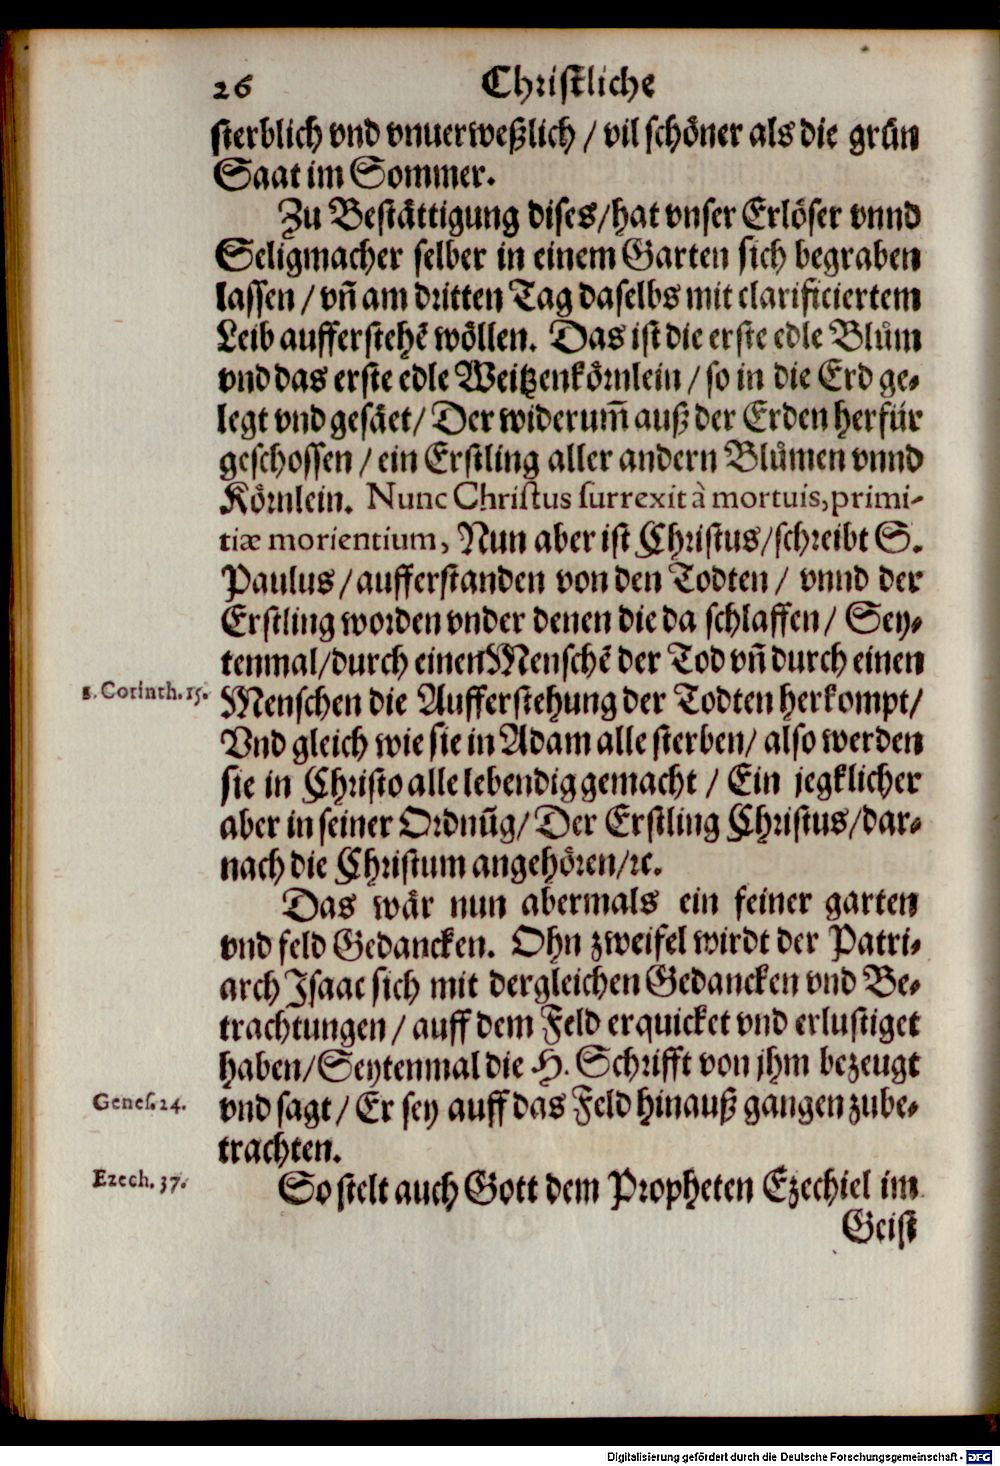 26 Christliche
sterblich vnd vnuerweßlich / vil schöner als die grün
Saat im Sommer.
Zu Bestättigung dises/hat vnser Erlöser vnnd
Seligmacher selber in einem Garten sich begraben
lassen / vñ am dritten Tag daselbs mit clarificiertem
Leib aufferstehẽ wöllen. Das ist die erste edle Blům
vnd das erste edle Weitzenkörnlein / so in die Erd ge-
legt vnd gesäet/ Der widerum̃ auß der Erden herfür
geschossen / ein Erstling aller andern Blůmen vnnd
Körnlein. Nunc Christus surrexit à mortuis, primi-
tiæ morientium, Nun aber ist Christus/schreibt S.
Paulus / aufferstanden von den Todten / vnnd der
Erstling worden vnder denen die da schlaffen / Sey-
tenmal/durch einen Menschẽ der Tod vñ durch einen
1. Corinth. 15. Menschen die Aufferstehung der Todten herkompt/
Vnd gleich wie sie in Adam alle sterben/ also werden
sie in Christo alle lebendig gemacht / Ein jegklicher
aber in seiner Ordnũg/ Der Erstling Christus/dar-
nach die Christum angehören/ꝛc.
Das wär nun abermals ein feiner garten
vnd feld Gedancken. Ohn zweifel wirdt der Patri-
arch Isaac sich mit dergleichen Gedancken vnd Be-
trachtungen / auff dem Feld erquicket vnd erlustiget
haben/Seytenmal die H. Schrifft von jhm bezeugt
Genes. 24. vnd sagt / Er sey auff das Feld hinauß gangen zube-
trachten.
Ezech. 37. So stelt auch Gott dem Propheten Ezechiel im
Geist
Digitalisierung gefördert durch die Deutsche Forschungsgemeinschaft - DFG